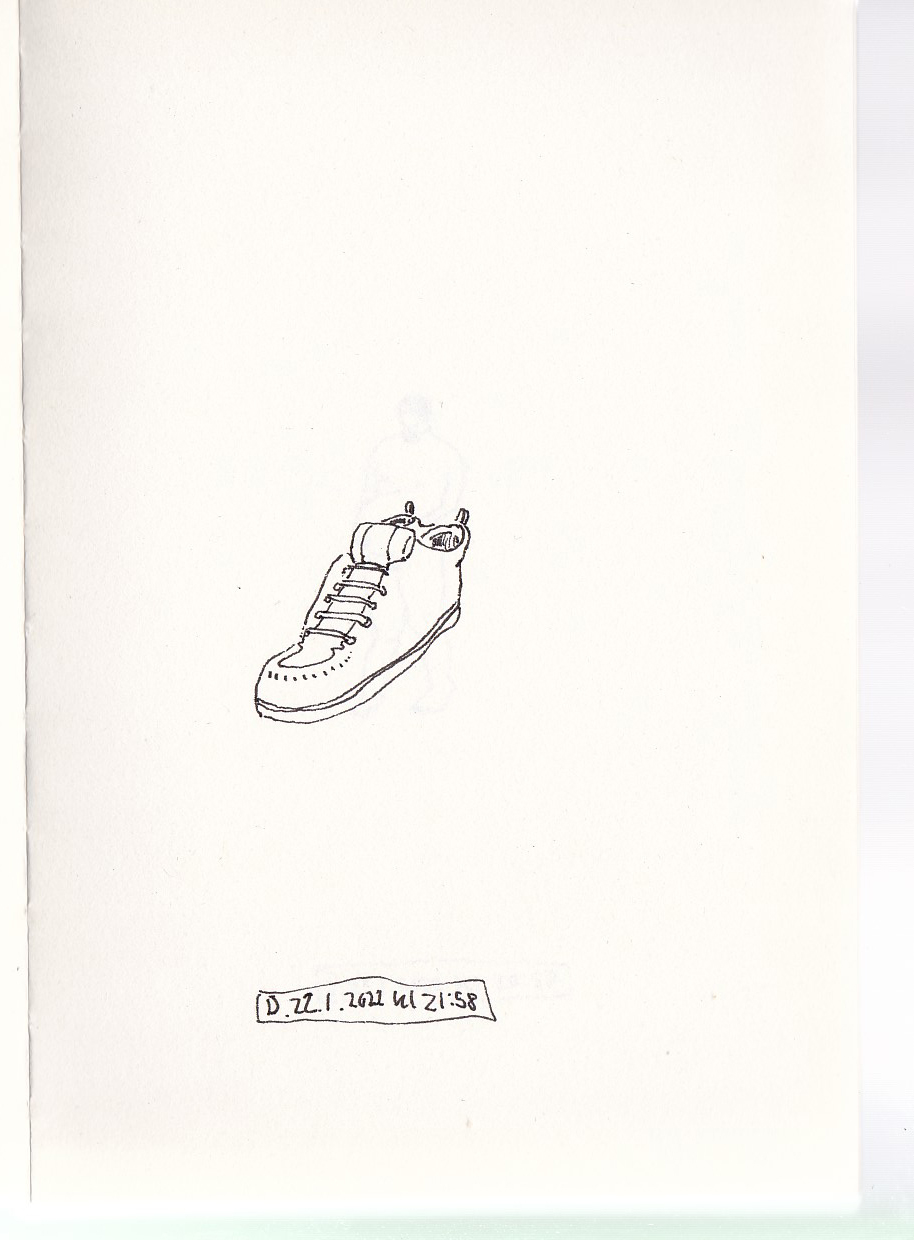 D. 22.1.2022 kl 21:58